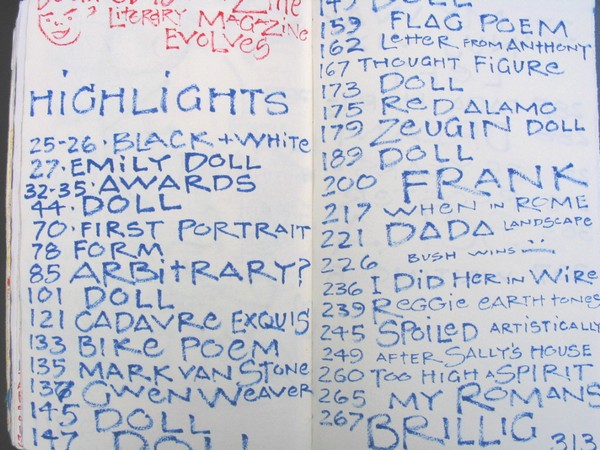 Zine
Literary Magazine
Evolves
HIGHLIGHTS
25-26 · BLACK + WHITE
27 · EMILY DOLL
32-35 · AWARDS
44 · DOLL
70 · FIRST PORTRAIT
78 FORM
85 ARBITRARY?
101 DOLL
121 CADAVRE EXQUIS
133 BIKE POEM
135 MARK VAN STONE
136 GWEN WEAVER
145 DOLL
147 DOLL
149 DOLL
159 FLAG POEM
162 LETTER FROM ANTHONY
167 THOUGHT FIGURE
173 DOLL
175 RED ALAMO
179 ZEUGIN DOLL
189 DOLL
200 FRANK
217 WHEN IN ROME
221 DADA LANDSCAPE
226 BUSH WINS
236 I DID HER IN WIRE
239 REGGIE EARTH TONES
245 SPOILED ARTISTICALLY
249 AFTER SALLY'S HOUSE
260 TOO HIGH A SPIRIT
265 MY ROMANS
267 BRILLIG
313